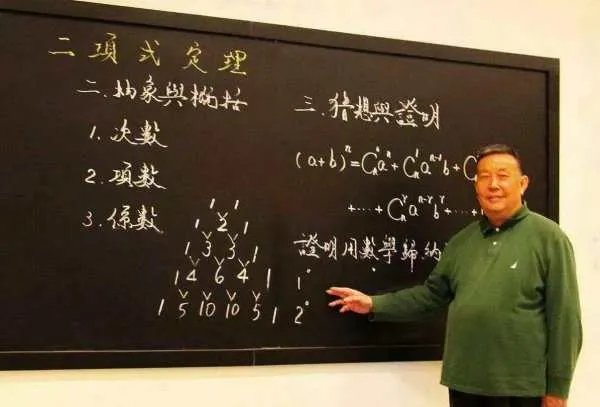 二項式定理
二.抽象與概括
1.次數
2.項數
3.係數
1 1
1 2 1
1 3 3 1
1 4 6 4 1
1 5 10 10 5 1
三.猜想與證明
(a+b)ⁿ=Cₙ⁰aⁿ+Cₙ¹aⁿ⁻¹b+C
+…+Cₙʳaⁿ⁻ʳbʳ+…
證明用數學歸納
1°
2°